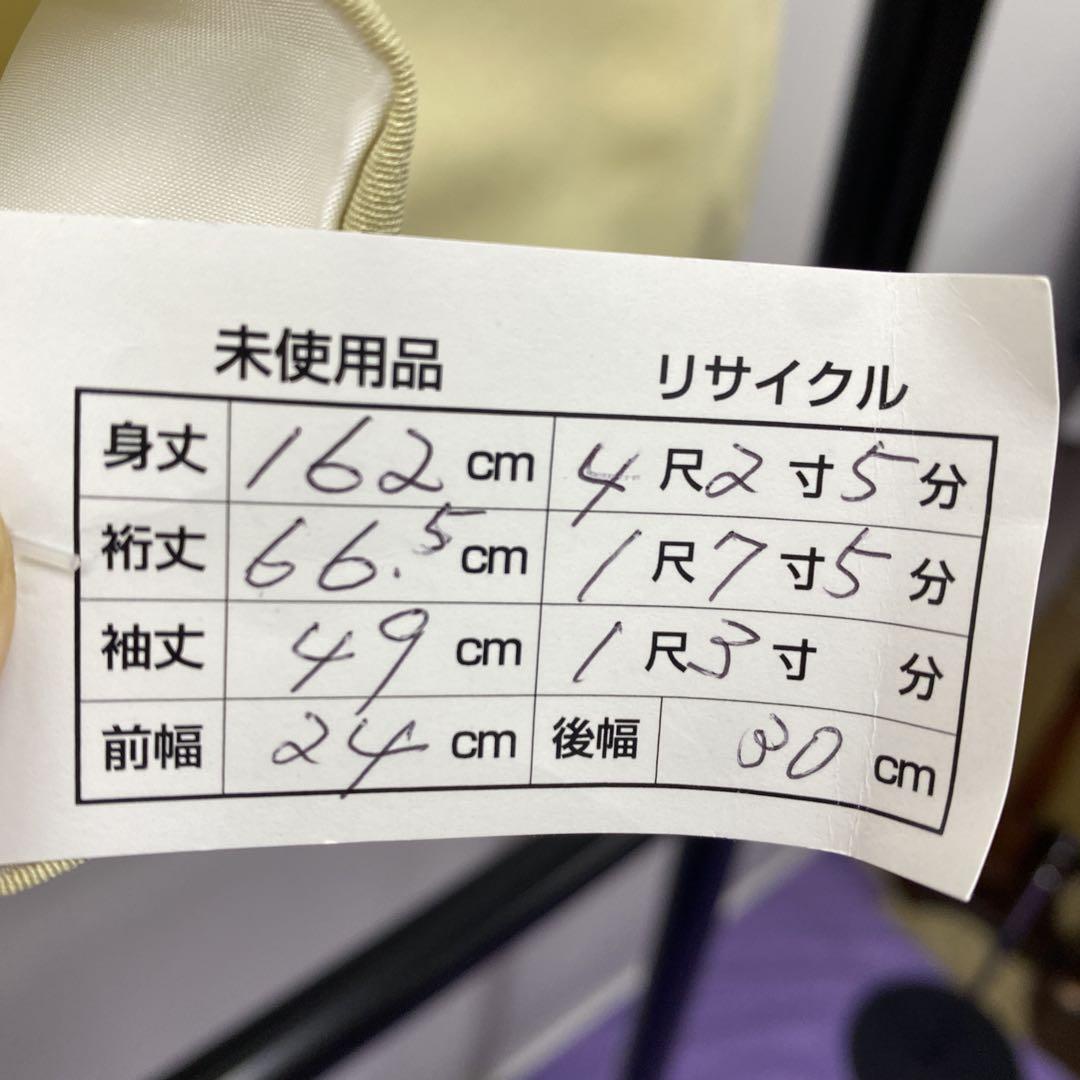 未使用品 リサイクル
身丈 162 cm 4 尺 2 寸 5 分
裄丈 66.5 cm 1 尺 7 寸 5 分
袖丈 49 cm 1 尺 3 寸 分
前幅 24 cm 後幅 30 cm